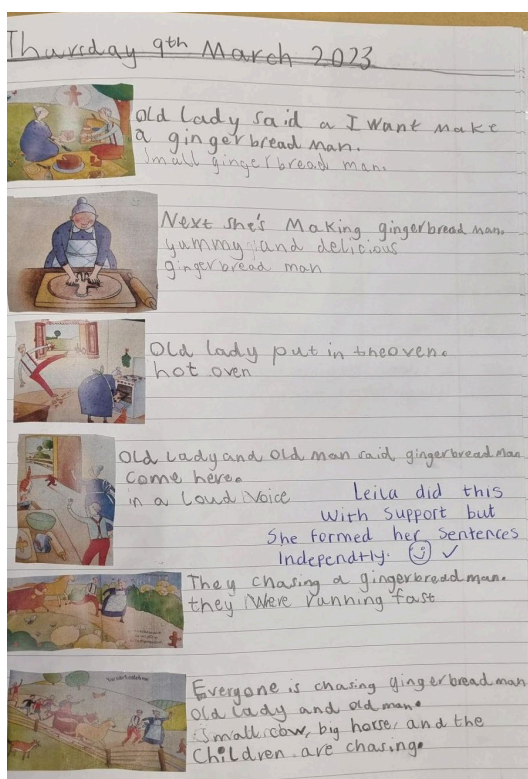 Thursday 9th March 2023
Old lady said a I want make
a gingerbread man.
Small gingerbread man.
Next she's Making gingerbread man.
yummy and delicious
gingerbread man
Old lady put in theoven.
hot oven
Old Lady and old man said gingerbread man
come here.
in a loud voice
Leila did this
with support but
She formed her sentences
Independtly. ✓
They chasing a gingerbread man.
they were running fast
Everyone is chasing gingerbread man
old lady and old man.
Small cow, big horse, and the
children are chasing.